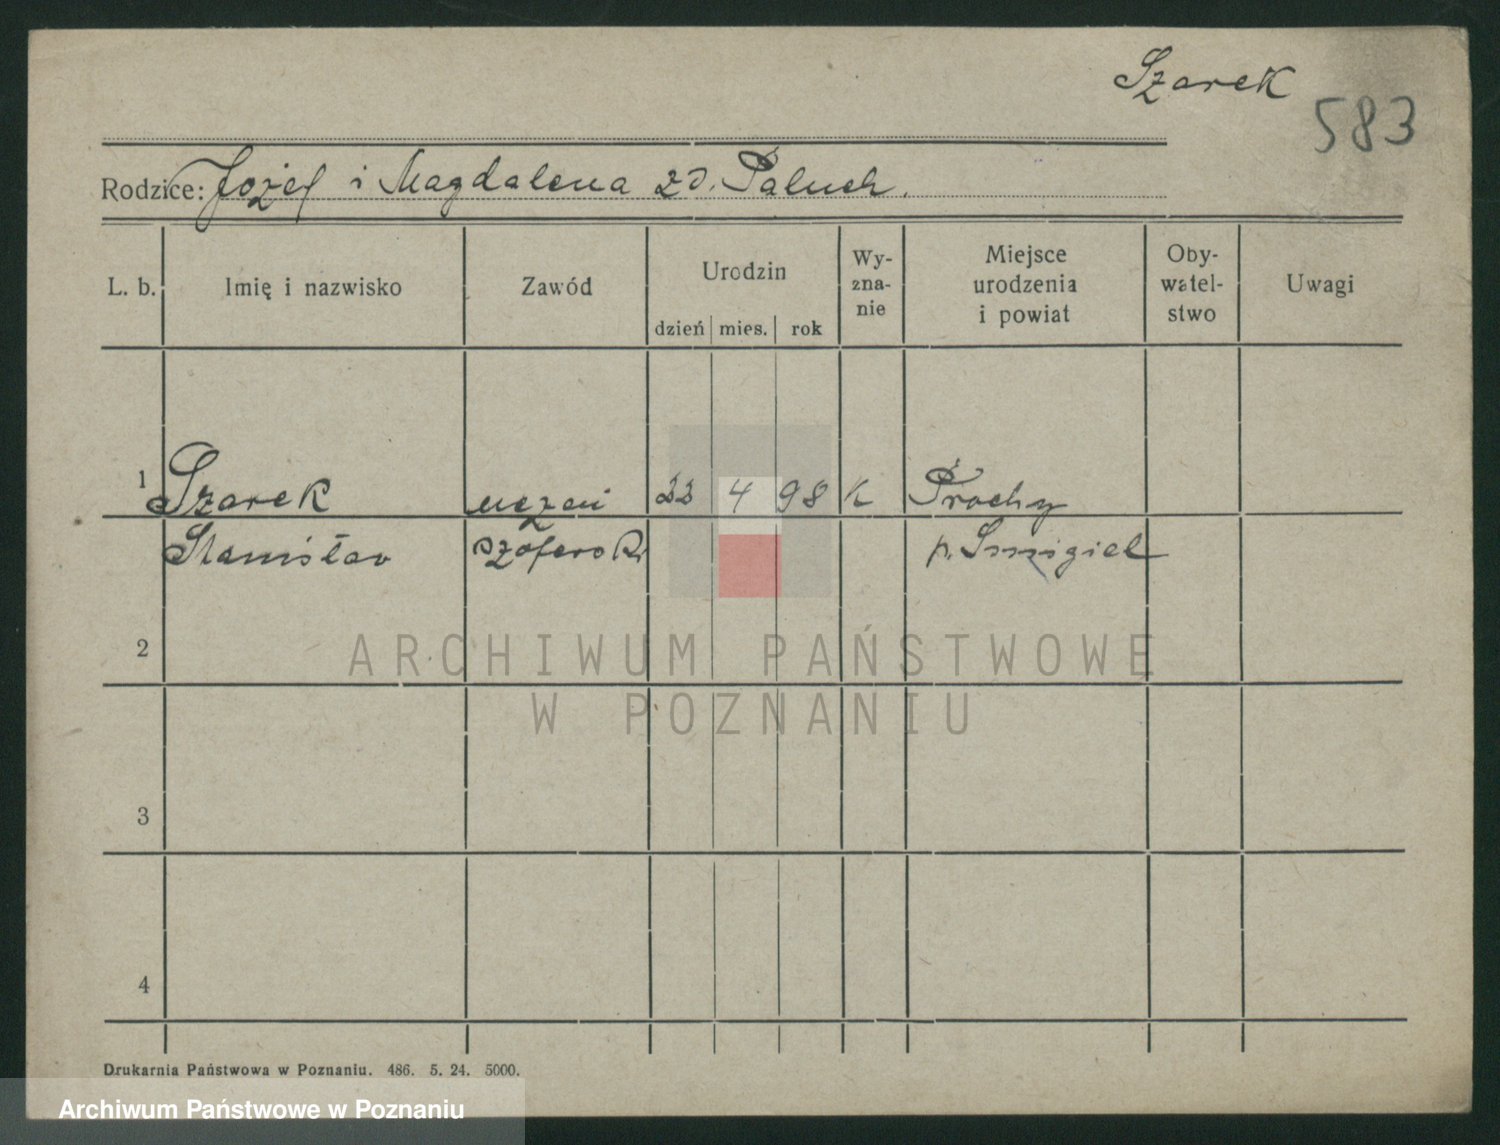 Szarek
583
Rodzice: Józef i Magdalena zd. Paluch.
L. b. Imię i nazwisko Zawód Urodzin dzień mies. rok Wy-zna-nie Miejsce urodzenia i powiat Oby-watel-stwo Uwagi
1 Szarek uczeń 4 98 k Prochy
Stanisław szofersk. p. Śmigiel
2
3
4
Drukarnia Państwowa w Poznaniu. 486. 5. 24. 5000.
ARCHIWUM PAŃSTWOWE
W POZNANIU
Archiwum Państwowe w Poznaniu